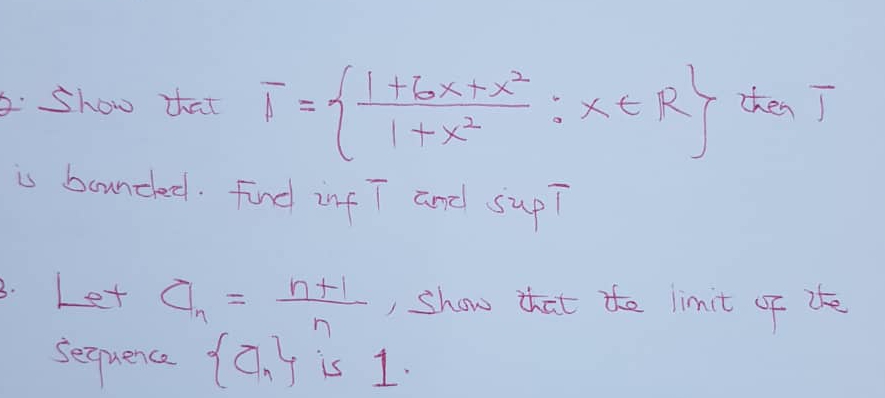 2. Show that T = { (1+6x+x²)/(1+x²) : x ∈ R } then T
is bounded. Find inf T and sup T
3. Let aₙ = (n+1)/n, show that the limit of the
sequence {aₙ} is 1.